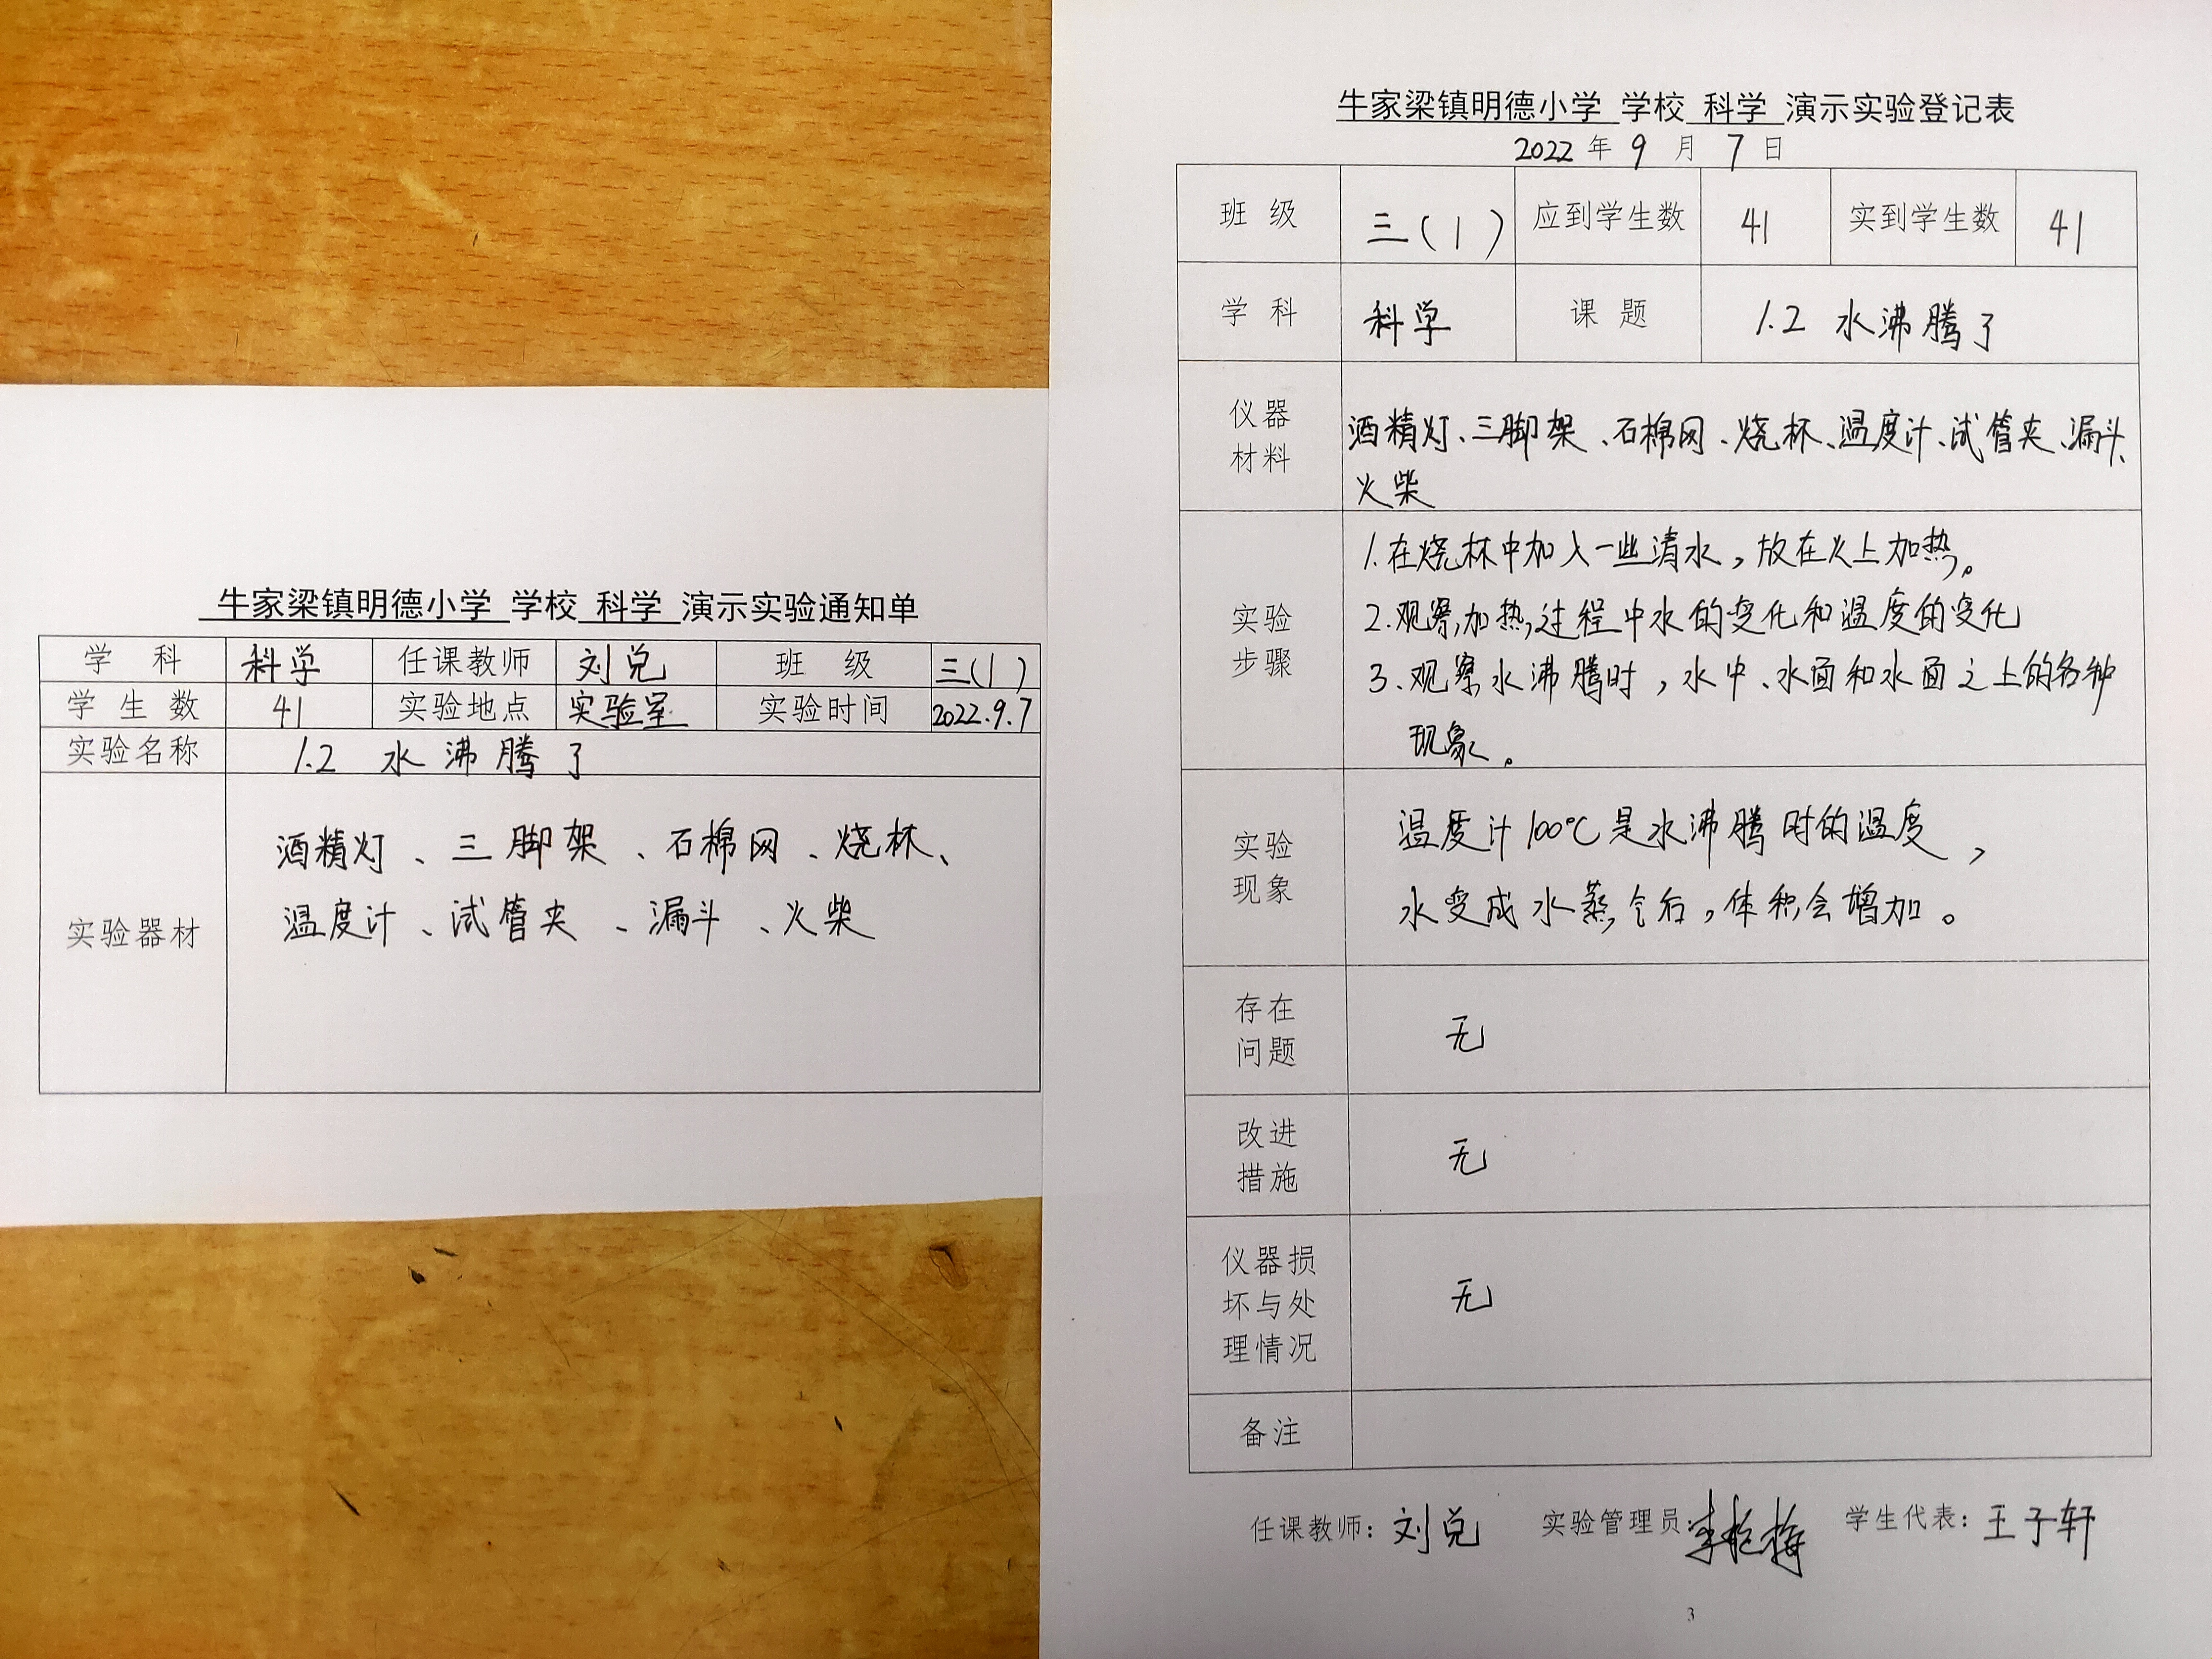 牛家梁镇明德小学 学校 科学 演示实验通知单
学 科 科学 任课教师 刘兑 班 级 三(1)
学 生 数 41 实验地点 实验室 实验时间 2022.9.7
实验名称 1.2 水沸腾了
实验器材
酒精灯、三脚架、石棉网、烧杯、
温度计、试管夹、漏斗、火柴
牛家梁镇明德小学 学校 科学 演示实验登记表
2022 年 9 月 7 日
班 级 三(1) 应到学生数 41 实到学生数 41
学 科 科学 课 题 1.2 水沸腾了
仪器
材料
酒精灯、三脚架、石棉网、烧杯、温度计、试管夹、漏斗、
火柴
实验
步骤
1.在烧杯中加入一些清水,放在火上加热。
2.观察加热过程中水的变化和温度的变化
3.观察水沸腾时,水中、水面和水面之上的各种
现象。
实验
现象
温度计100℃是水沸腾时的温度,
水变成水蒸气后,体积会增加。
存在
问题
无
改进
措施
无
仪器损
坏与处
理情况
无
备注
任课教师:刘兑 实验管理员: 学生代表:王子轩
3